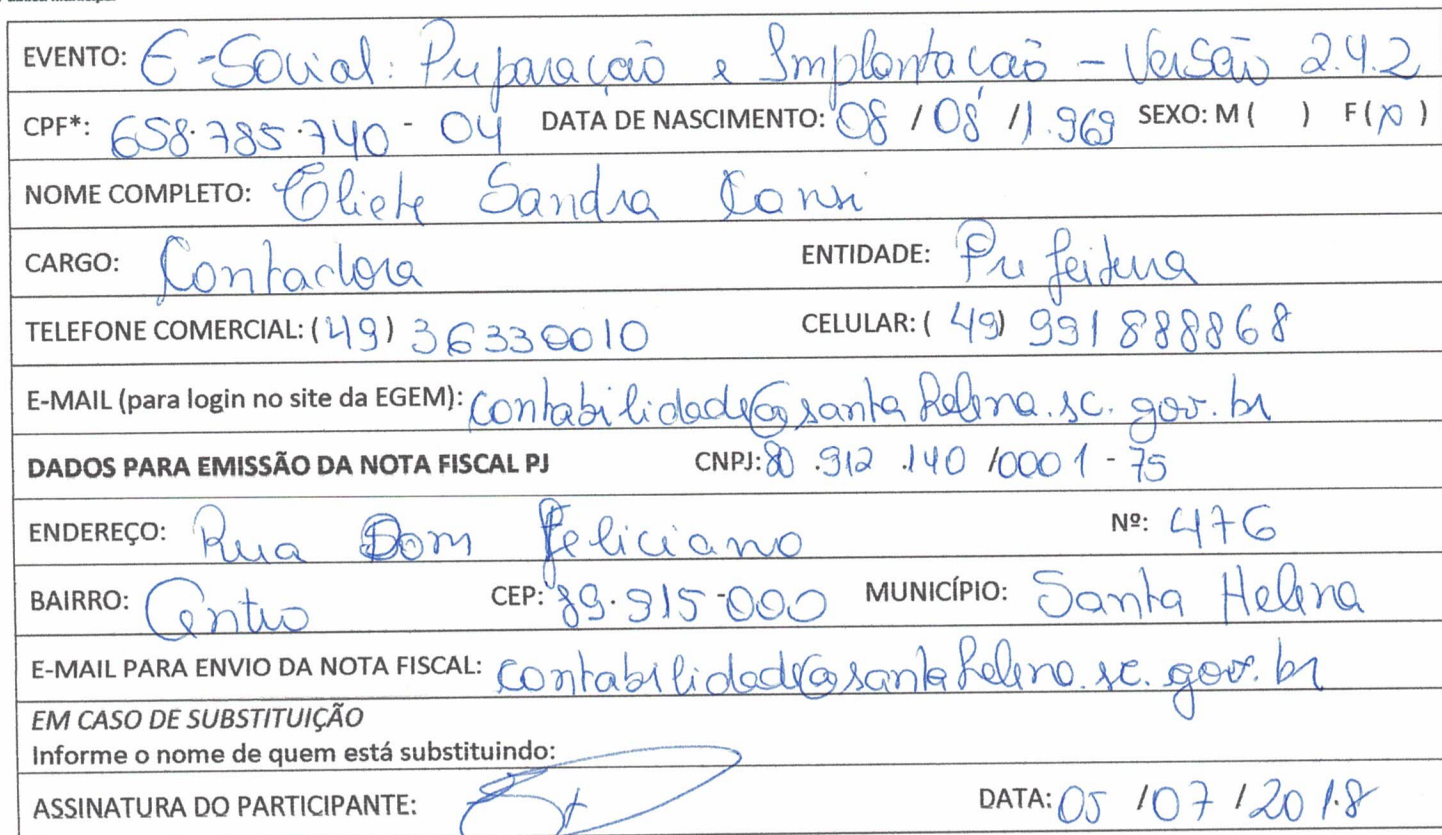 EVENTO: E-Social: Preparação e Implantação - Versão 2.4.2
CPF*: 658.785.740-04 DATA DE NASCIMENTO: 08/08/1.969 SEXO: M ( ) F (x)
NOME COMPLETO: Eliete Sandra Consi
CARGO: Contadora ENTIDADE: Prefeitura
TELEFONE COMERCIAL: (49) 36330010 CELULAR: (49) 991888868
E-MAIL (para login no site da EGEM): contabilidade@santahelena.sc.gov.br
DADOS PARA EMISSÃO DA NOTA FISCAL PJ CNPJ: 80.912.140/0001-75
ENDEREÇO: Rua Dom Feliciano Nº: 476
BAIRRO: Centro CEP: 89.915-000 MUNICÍPIO: Santa Helena
E-MAIL PARA ENVIO DA NOTA FISCAL: contabilidade@santahelena.sc.gov.br
EM CASO DE SUBSTITUIÇÃO
Informe o nome de quem está substituindo:
ASSINATURA DO PARTICIPANTE: DATA: 05/07/2018